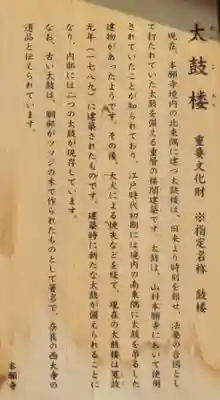 太鼓楼 重要文化財 ※指定名称 鼓楼
現在、本願寺境内の北東隅に建つ太鼓楼は、旧来より時刻を報せ、法要の合図とし
て打たれていた太鼓を備える重層の楼閣建築です。太鼓は、山科本願寺において使用
されていたことが知られており、江戸時代初期には境内の南東隅に太鼓を吊るした
建物があったようです。その後、大火による焼失などを経て、現在の太鼓楼は寛政
元年(一七八九)に建築されたものです。建築時に新たな太鼓が備えられることに
なり、内部には二つの太鼓が現存しています。
なお、古い太鼓は、胴部がツツジの木で作られたものとして著名で、奈良の西大寺の
遺品と伝えられています。
本願寺